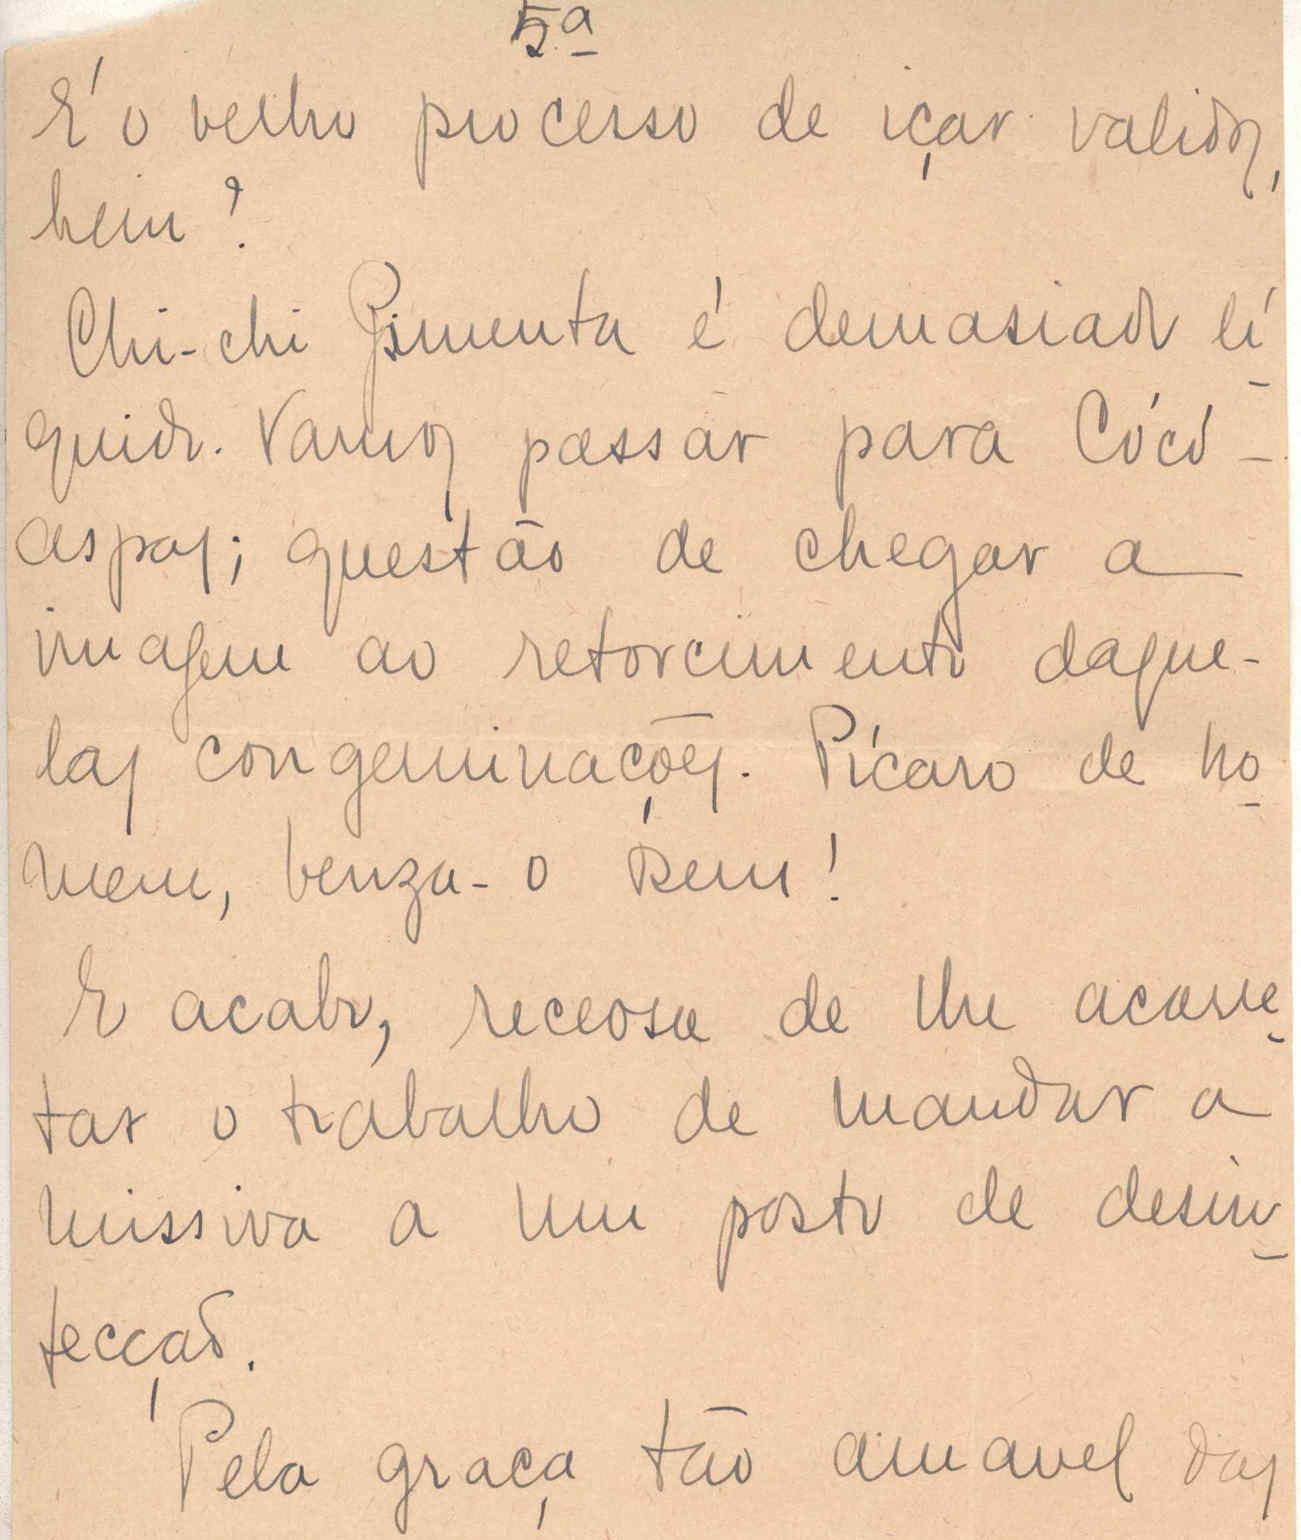 5ª
É o velho processo de içar validos,
hein?
Chi-chi Pimenta é demasiado lí
quido. Vamos passar para Cócó-
aspas; questão de chegar a
imagem ao retorcimento daque-
las congeminações. Pícaro de ho
mem, benza-o Deus!
E acabo, receosa de lhe acarre
tar o trabalho de mandar a
missiva a um posto de desin
fecção.
Pela graça tão amavel das